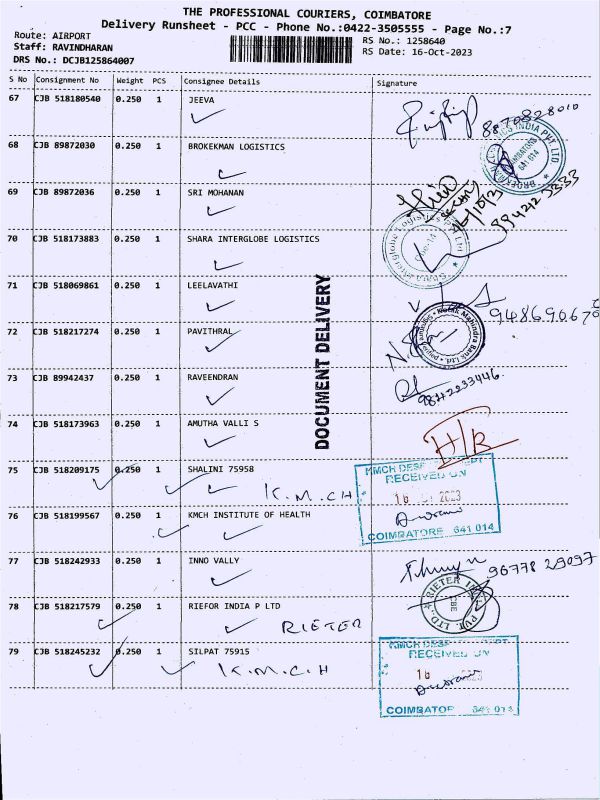 THE PROFESSIONAL COURIERS, COIMBATORE
Delivery Runsheet - PCC - Phone No.:0422-3505555 - Page No.:7
Route: AIRPORT
Staff: RAVINDHARAN
DRS No.: DCJB125864007
RS No.: 1258640
RS Date: 16-Oct-2023
S No Consignment No Weight PCS Consignee Details Signature
67 CJB 518180540 0.250 1 JEEVA
8870828010
68 CJB 89872030 0.250 1 BROKEKMAN LOGISTICS
69 CJB 89872036 0.250 1 SRI MOHANAN
70 CJB 518173883 0.250 1 SHARA INTERGLOBE LOGISTICS
71 CJB 518069861 0.250 1 LEELAVATHI
72 CJB 518217274 0.250 1 PAVITHRAL
73 CJB 89942437 0.250 1 RAVEENDRAN
9842233446
74 CJB 518173963 0.250 1 AMUTHA VALLI S
H/B
75 CJB 518209175 0.250 1 SHALINI 75958
K.M.C.H
RECEIVED ON
16 2023
COIMBATORE 641 014
76 CJB 518199567 0.250 1 KMCH INSTITUTE OF HEALTH
77 CJB 518242933 0.250 1 INNO VALLY
96778 29097
78 CJB 518217579 0.250 1 RIEFOR INDIA P LTD
RIETER
79 CJB 518245232 0.250 1 SILPAT 75915
K.M.C.H
RECEIVED ON
16 2023
DOCUMENT DELIVERY